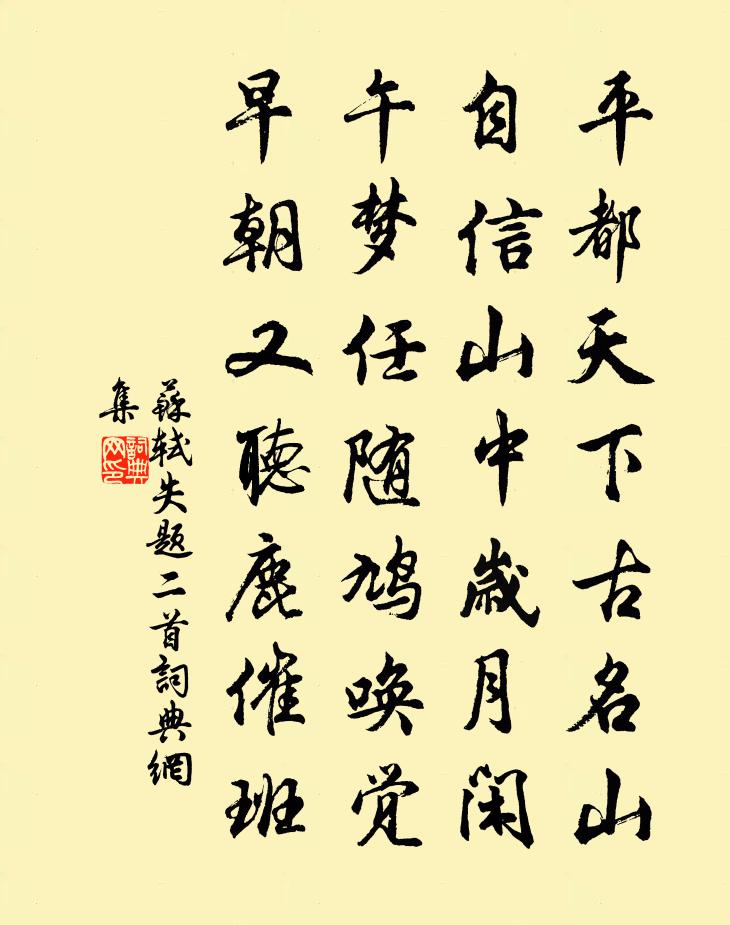 平都天下古名山
自信山中歲月闲
午梦任随鸠唤觉
早朝又聽鹿催班
蘇轼失题二首詞典網
集
詞典
网印